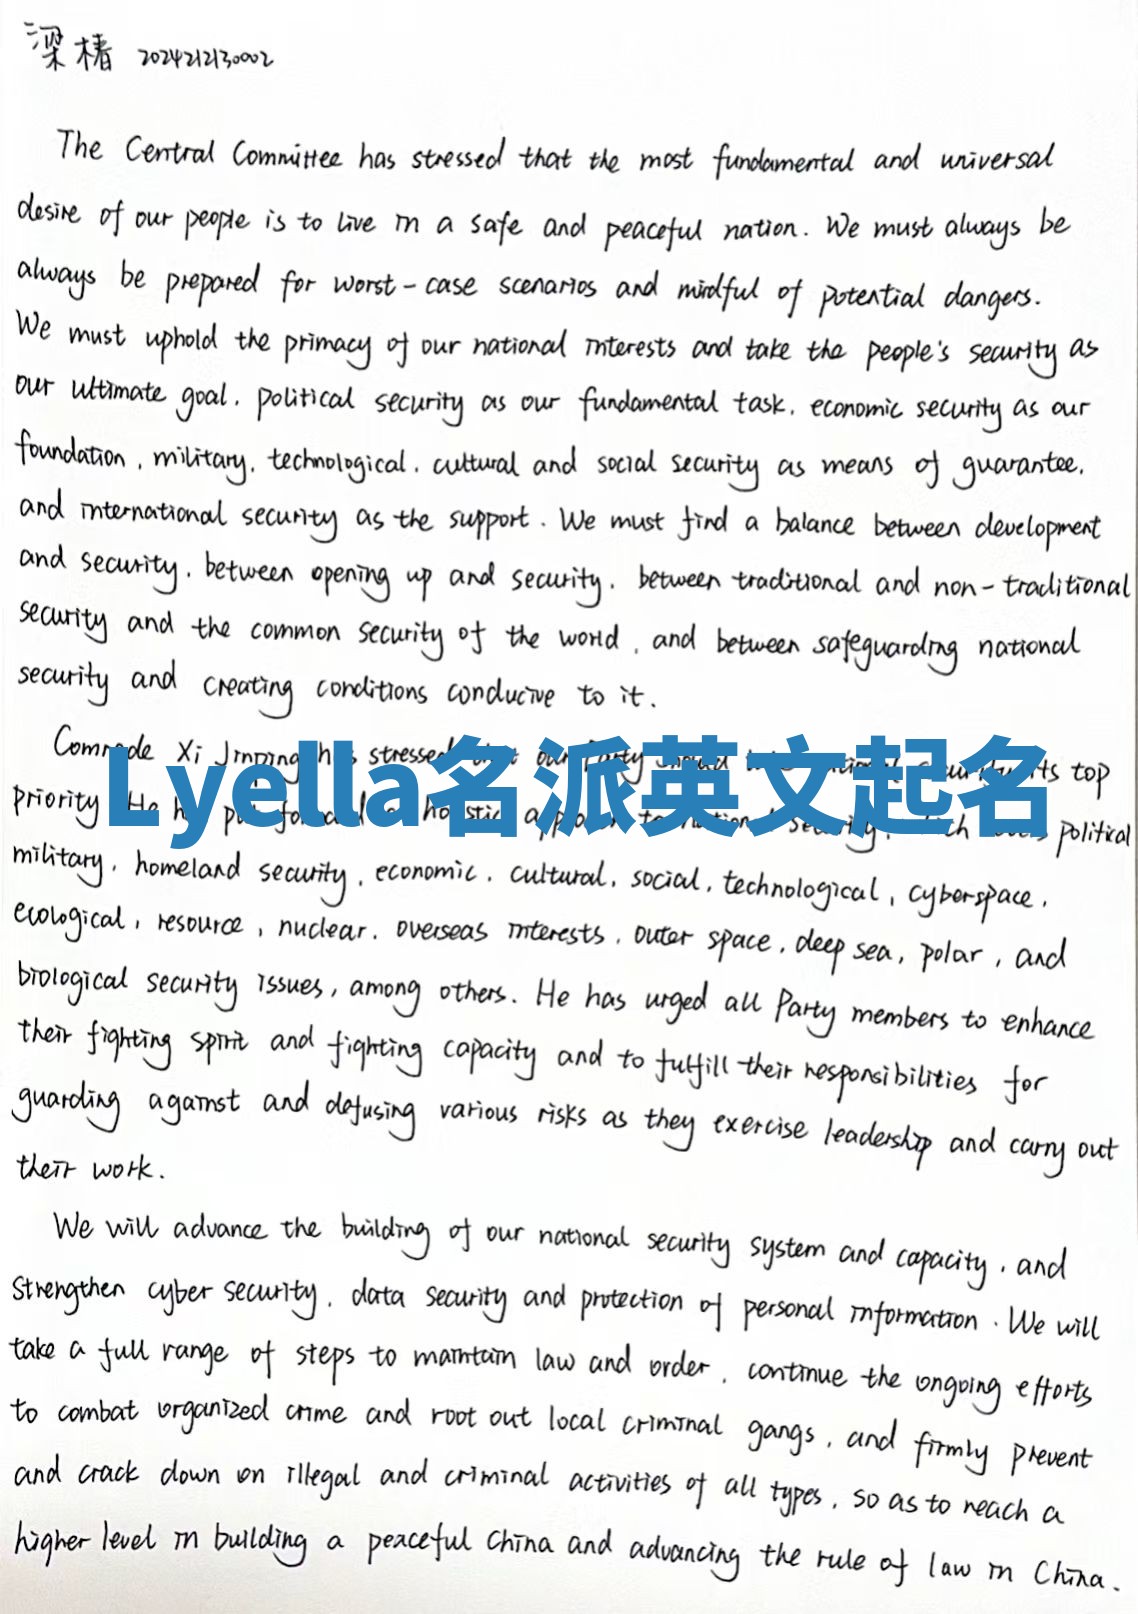 梁椿 2024212130002
The Central Committee has stressed that the most fundamental and universal
desire of our people is to live in a safe and peaceful nation. We must always be
always be prepared for worst-case scenarios and mindful of potential dangers.
We must uphold the primacy of our national interests and take the people's security as
our ultimate goal, political security as our fundamental task, economic security as our
foundation, military, technological, cultural and social security as means of guarantee,
and international security as the support. We must find a balance between development
and security, between opening up and security, between traditional and non-traditional
security and the common security of the world, and between safeguarding national
security and creating conditions conducive to it.
Comrade Xi Jinping has stressed our Party top
Lyella名派英文起名
priority. He political
military, homeland security, economic, cultural, social, technological, cyberspace,
ecological, resource, nuclear, overseas interests, outer space, deep sea, polar, and
biological security issues, among others. He has urged all Party members to enhance
their fighting spirit and fighting capacity and to fulfill their responsibilities for
guarding against and defusing various risks as they exercise leadership and carry out
their work.
We will advance the building of our national security system and capacity, and
strengthen cyber security, data security and protection of personal information. We will
take a full range of steps to maintain law and order, continue the ongoing efforts
to combat organized crime and root out local criminal gangs, and firmly prevent
and crack down on illegal and criminal activities of all types, so as to reach a
higher level in building a peaceful China and advancing the rule of law in China.